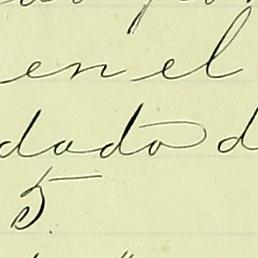 en el
dado d
5.